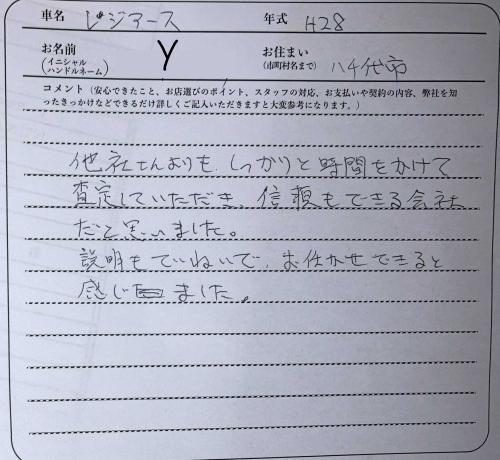 車名 レジアース 年式 H28
お名前 (イニシャル ハンドルネーム) Y お住まい (市町村名まで) 八千代市
コメント(安心できたこと、お店選びのポイント、スタッフの対応、お支払いや契約の内容、弊社を知
ったきっかけなどできるだけ詳しくご記入いただきますと大変参考になります。)
他社さんよりも、しっかりと時間をかけて
査定していただき、信頼もできる会社
だと思いました。
説明もていねいで、お任かせできると
感じました。